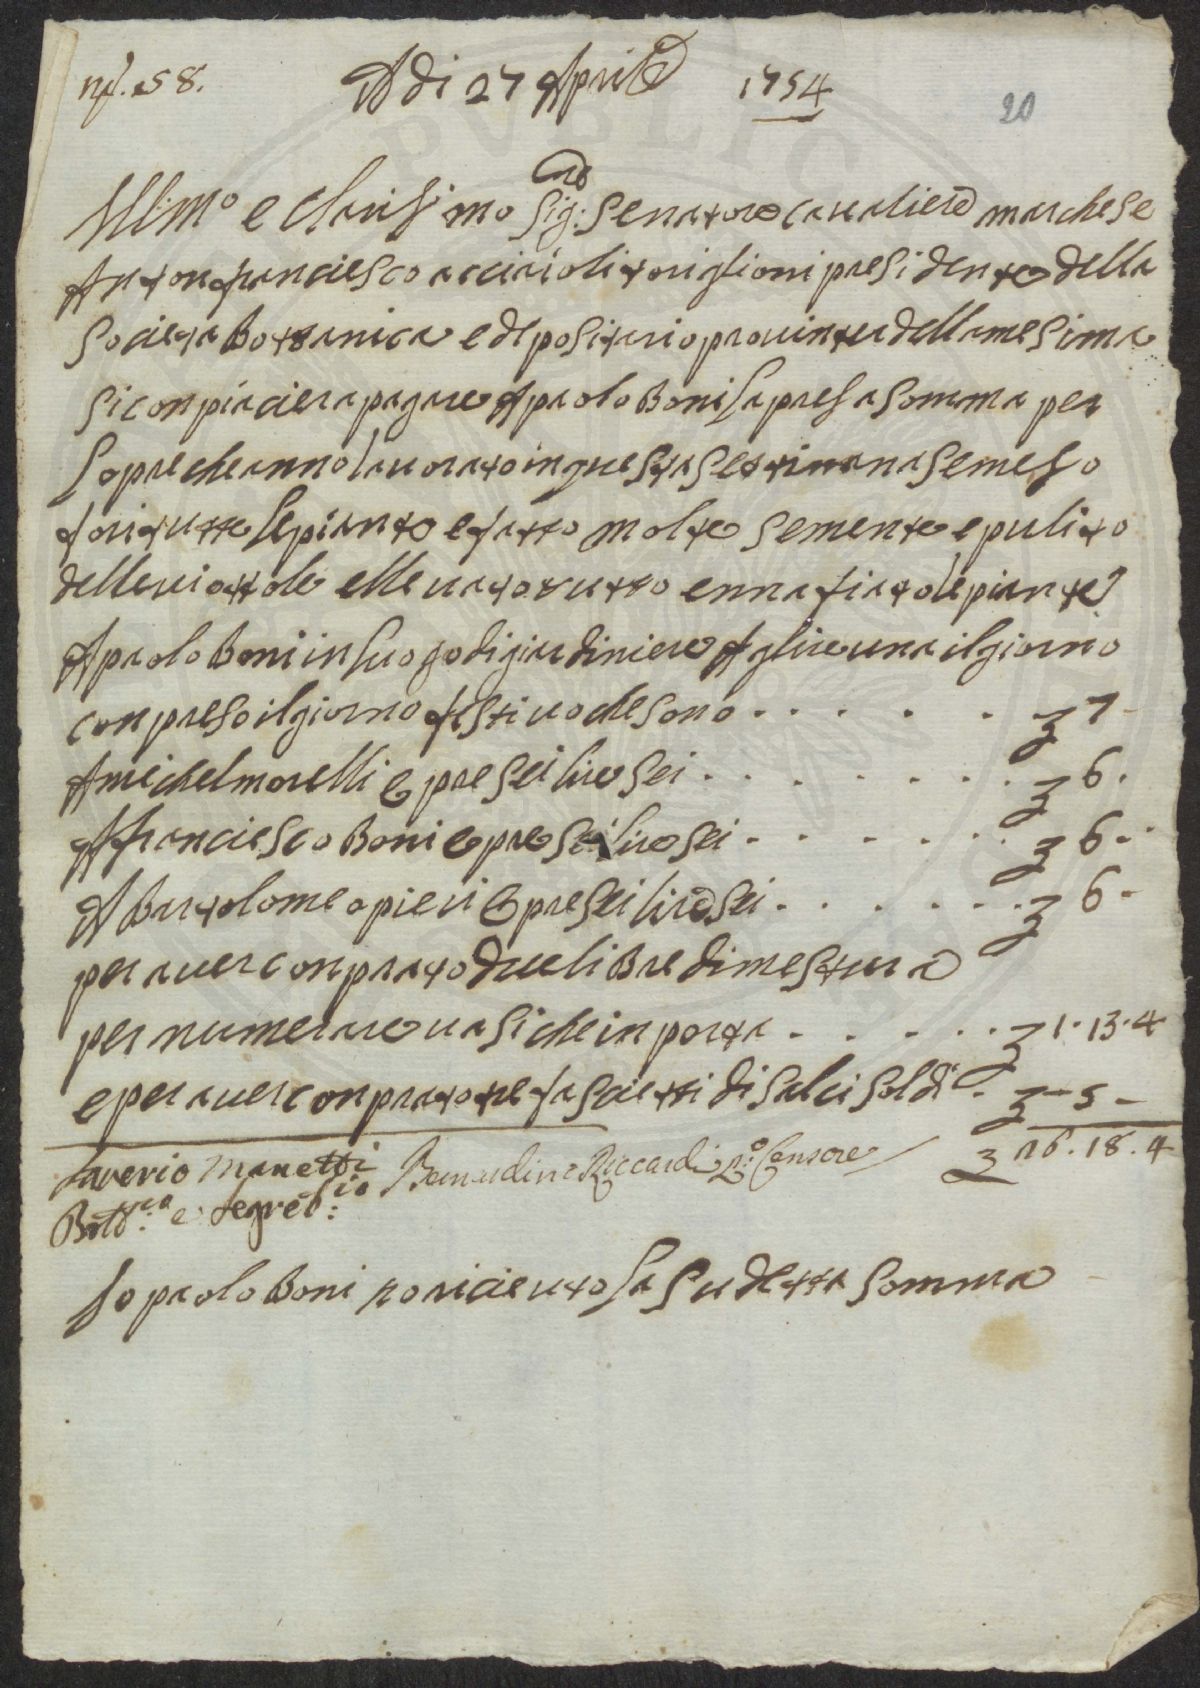 n.º 58. A di 27 Aprile 1754
20
Ill:mo e clarisimo Sig:re Senatore cavaliere marchese
Antonfranciesco acciaioli toriglioni presidente della
Societa Bottanica e depositario provinter della mesima
si conpiaciera pagare A paolo Boni la presa somma per
lopre che anno lavorato in questa settimana semeso
fori tutte le piante e fatto molte semente e pulito
delle viottole e llevato tutto ennafiato le piante
A paolo Boni in luogo di giardiniere A glire una il giorno
conpreso il giorno festivo che sono . . . . . . ʒ 7 -
A michel morelli e pre sei lire sei . . . . . . . ʒ 6 .
A franciesco Boni e pre sei lire sei . . . . . . ʒ 6 -
A Bartolomeo pieri e pre sei lire sei . . . . . . ʒ 6 -
per aver conprato due liBre di mestura
per numerare vasi che inporta . . . . . ʒ 1 . 13 . 4
e per aver conprato tre fascietti di salci soldi . ʒ - 5 -
Saverio Manetti Bernardino Riccardi p:º Censore ʒ 26 . 18 . 4
Bott:co e Segret:io
Io paolo Boni ro riceuto la sudetta somma